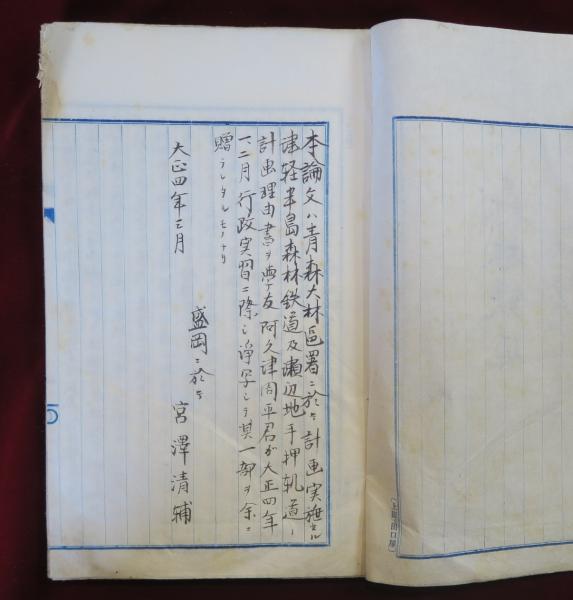 本論文ハ青森大林區署ニ於テ計画実施セル
津軽半島森林鉄道及瀬辺地手押軌道ノ
計画理由書ヲ学友阿久津周平君ガ大正四年
一、二月行政実習ニ際シ淨写シテ其一部ヲ余ニ
贈ラレタルモノナリ
大正四年三月
盛岡ニ於テ
宮澤清輔